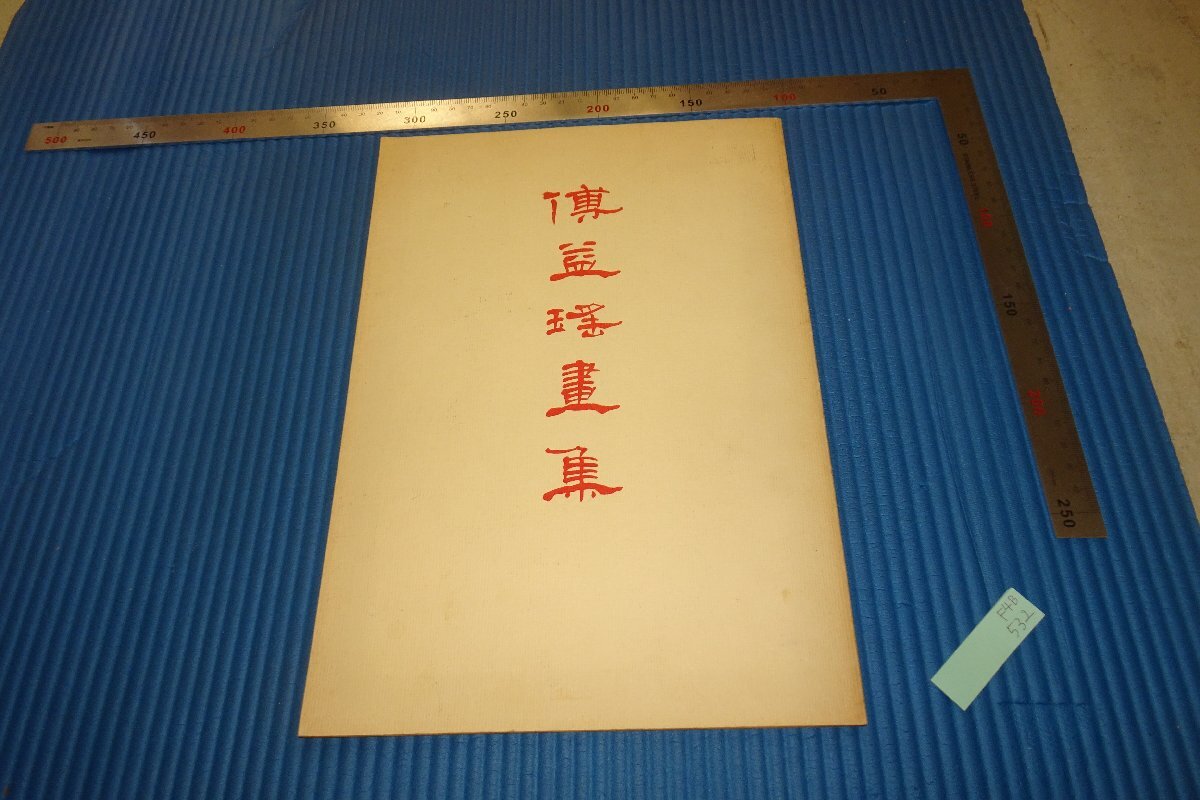 傅益瑤畫集
500 450 400 350 300 250 200 150 100 50
50 100 150 200 250
F4B
532